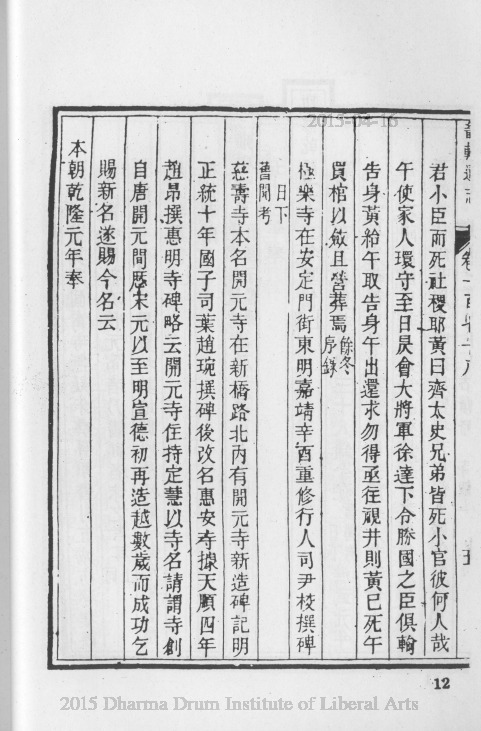 君小臣而死社稷耶黃曰齊太史兄弟皆死小官彼何人哉
午使家人環守至日昃會大將軍徐達下令勝國之臣俱輸
告身黃紿午取告身午出還求勿得亟徃覘井則黃已死午
買棺以斂且營葬焉餘冬序錄
極樂寺在安定門街東明嘉靖辛酉重修行人司尹校撰碑
日下舊聞考
慈壽寺本名開元寺在新橋路北內有開元寺新造碑記明
正統十年國子司葉趙琬撰碑後改名惠安寺據天順四年
趙昂撰惠明寺碑略云開元寺住持定慧以寺名請謂寺創
自唐開元間歷宋元以至明宣德初再造越數歲而成功乞
賜新名遂賜今名云
本朝乾隆元年奉
12
2015-04-16
2015 Dharma Drum Institute of Liberal Arts